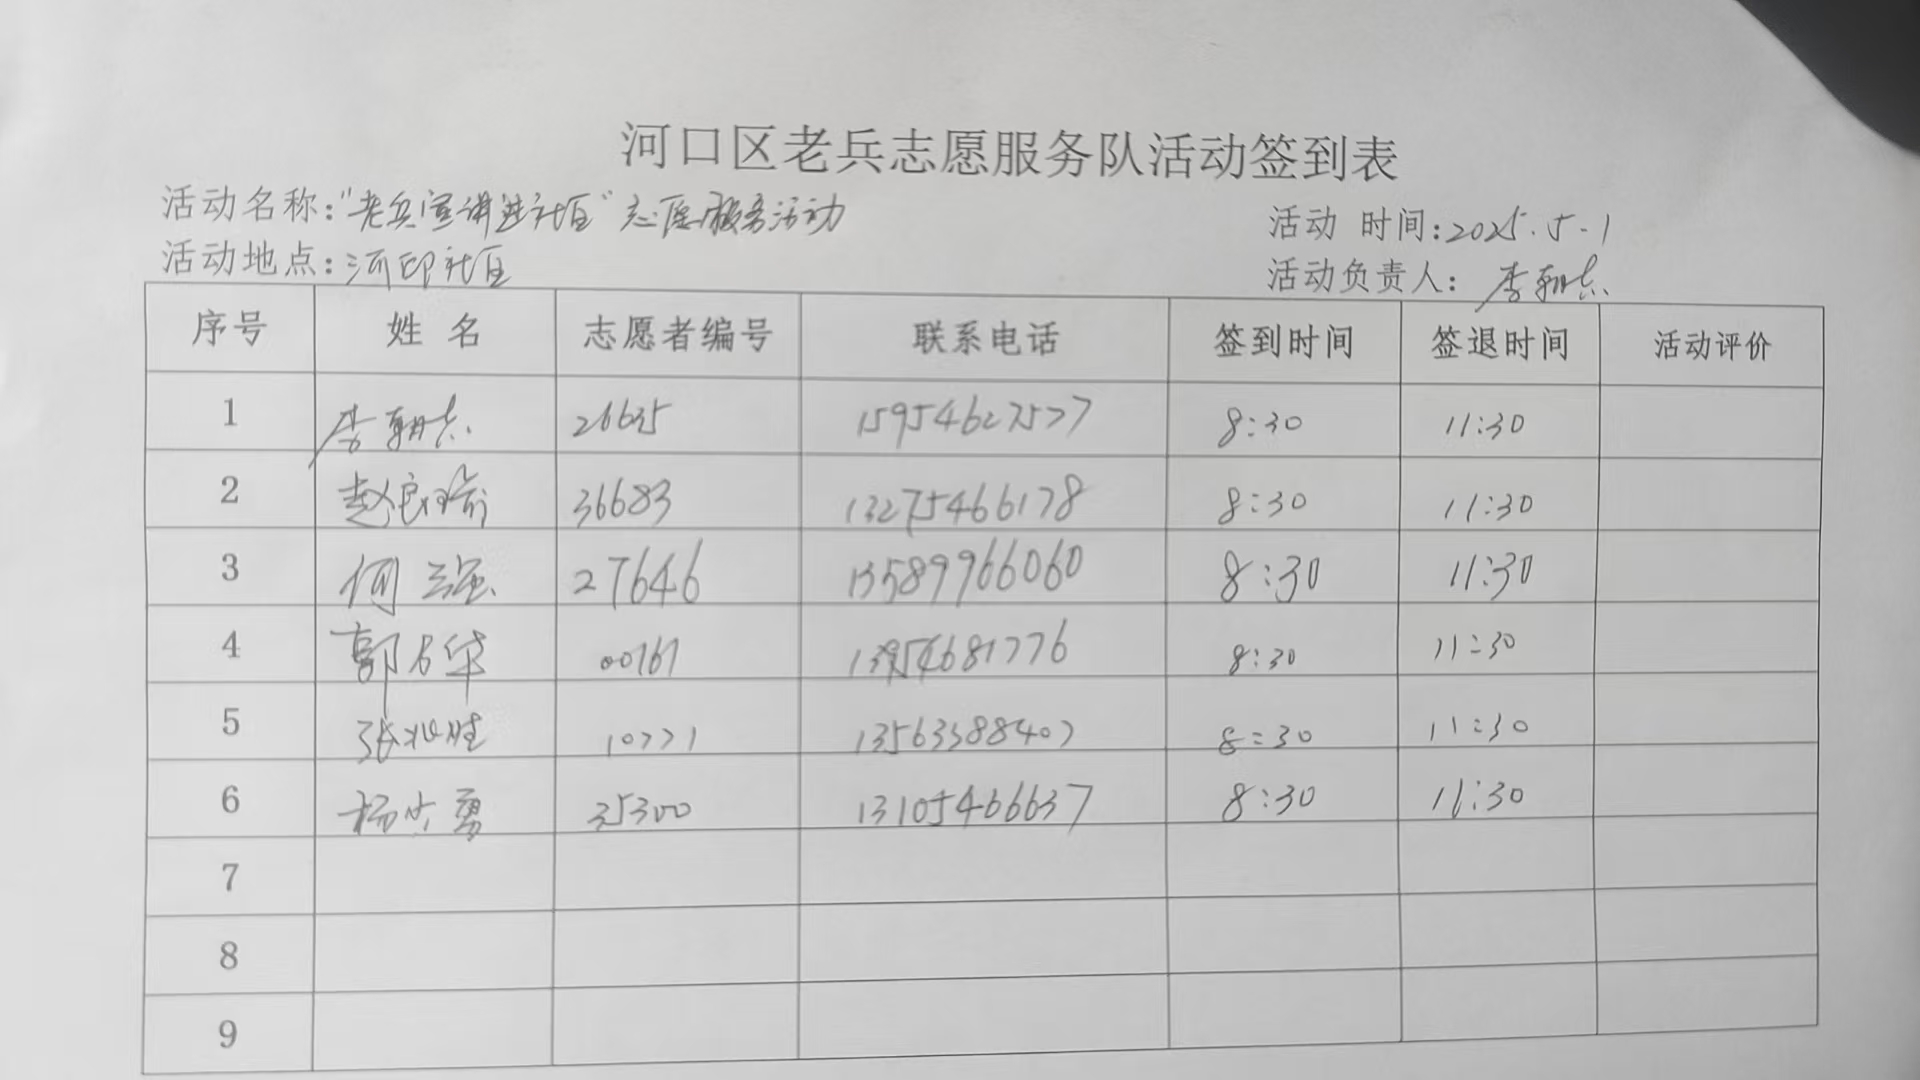 河口区老兵志愿服务队活动签到表
活动名称:"老兵宣讲进社区"志愿服务活动
活动 时间:2025.5.1
活动地点:河印社区
活动负责人: 李朝志
序号 姓 名 志愿者编号 联系电话 签到时间 签退时间 活动评价
1 李朝志 26635 15954627577 8:30 11:30
2 赵良瑜 36683 13275466178 8:30 11:30
3 何 27646 13589966060 8:30 11:30
4 郭 华 00167 13954681776 8:30 11:30
5 张兆胜 10771 13563388407 8:30 11:30
6 杨 勇 35300 13105466637 8:30 11:30
7
8
9